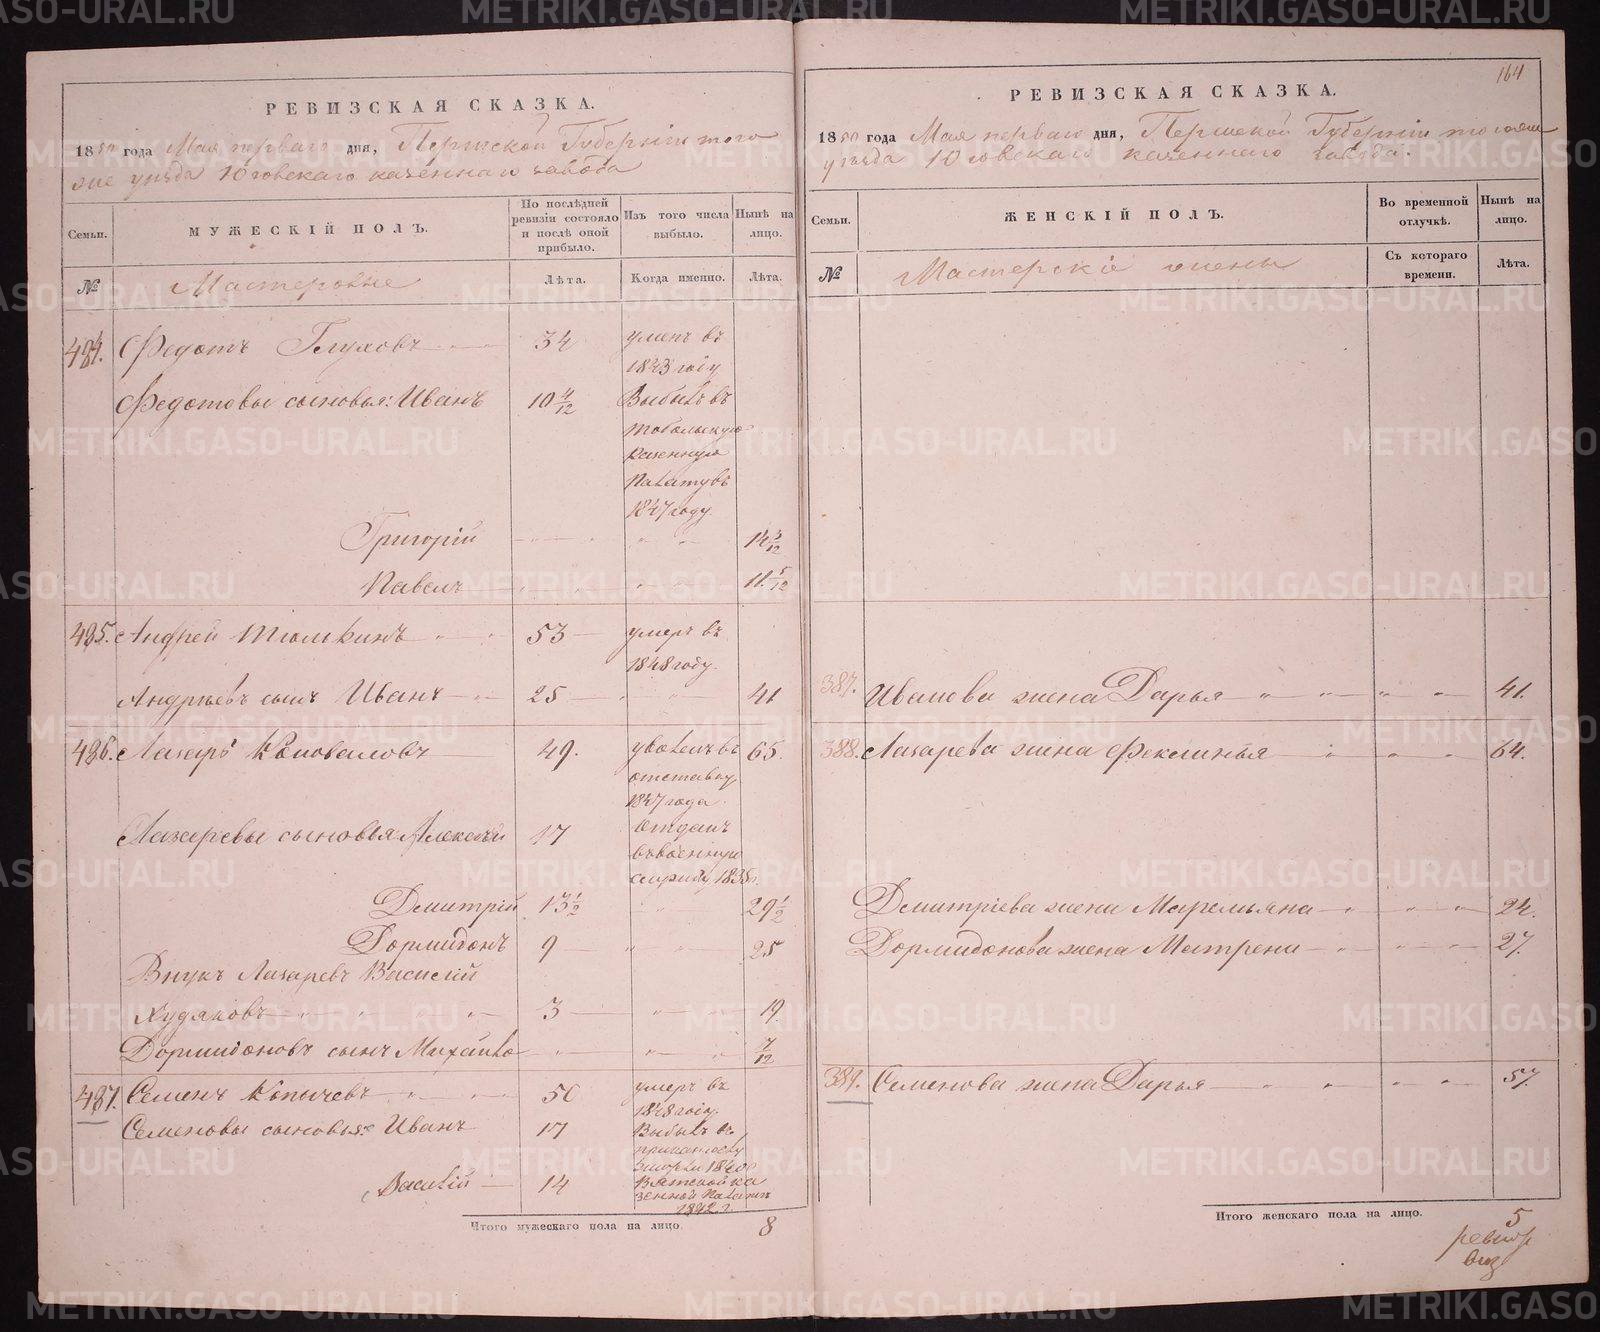 РЕВИЗСКАЯ СКАЗКА.
1850 года Мая перваго дня, Пермской Губерніи того
же уѣзда Юговскаго казеннаго завода
Семьи.
МУЖЕСКІЙ ПОЛЪ.
По послѣдней ревизіи состояло и послѣ оной прибыло.
Изъ того числа выбыло.
Нынѣ на лицо.
№
Мастеровые
Лѣта.
Когда именно.
Лѣта.
484. Федотъ Глуховъ 34 умеръ въ
1843 году
Федотовы сыновья: Иванъ 10 4/12 Выбылъ въ
тобольскую
казенную
палату въ
1847 году
Григорій 14 3/12
Павелъ 11 5/12
485. Андрей Тюмкинъ 53 умеръ въ
1848 году.
Андреевъ сынъ Иванъ 25 41
486. Лазарь Коноваловъ 49. уволенъ въ 65.
отставку
1847 года
Лазаревы сыновья Алексѣй 17 отданъ
въ военную
службу 1835 г.
Дмитрій 13 1/2 29 1/2
Дормидонъ 9 25
Внукъ Лазаревъ Василій
Худяковъ 3 19
Дормидоновъ сынъ Михайло 7/12
487. Семенъ Копычевъ 50 умеръ въ
1848 году.
Семеновы сыновья: Иванъ 17 Выбылъ въ
Василій 14 Вятской ка
зенной палаты
1842 г.
Итого мужескаго пола на лицо. 8
164
РЕВИЗСКАЯ СКАЗКА.
1850 года Мая перваго дня, Пермской Губерніи того же
уѣзда Юговскаго казеннаго завода.
Семьи.
ЖЕНСКІЙ ПОЛЪ.
Во временной отлучкѣ.
Нынѣ на лицо.
№
Мастерскіе жены
Съ котораго времени.
Лѣта.
387. Иванова жена Дарья 41.
388. Лазарева жена Феклинья 64.
Дмитріева жена Маремьяна 24.
Дормидонова жена Матрена 27.
389. Семенова жена Дарья 57.
Итого женскаго пола на лицо. 5
METRIKI.GASO-URAL.RU